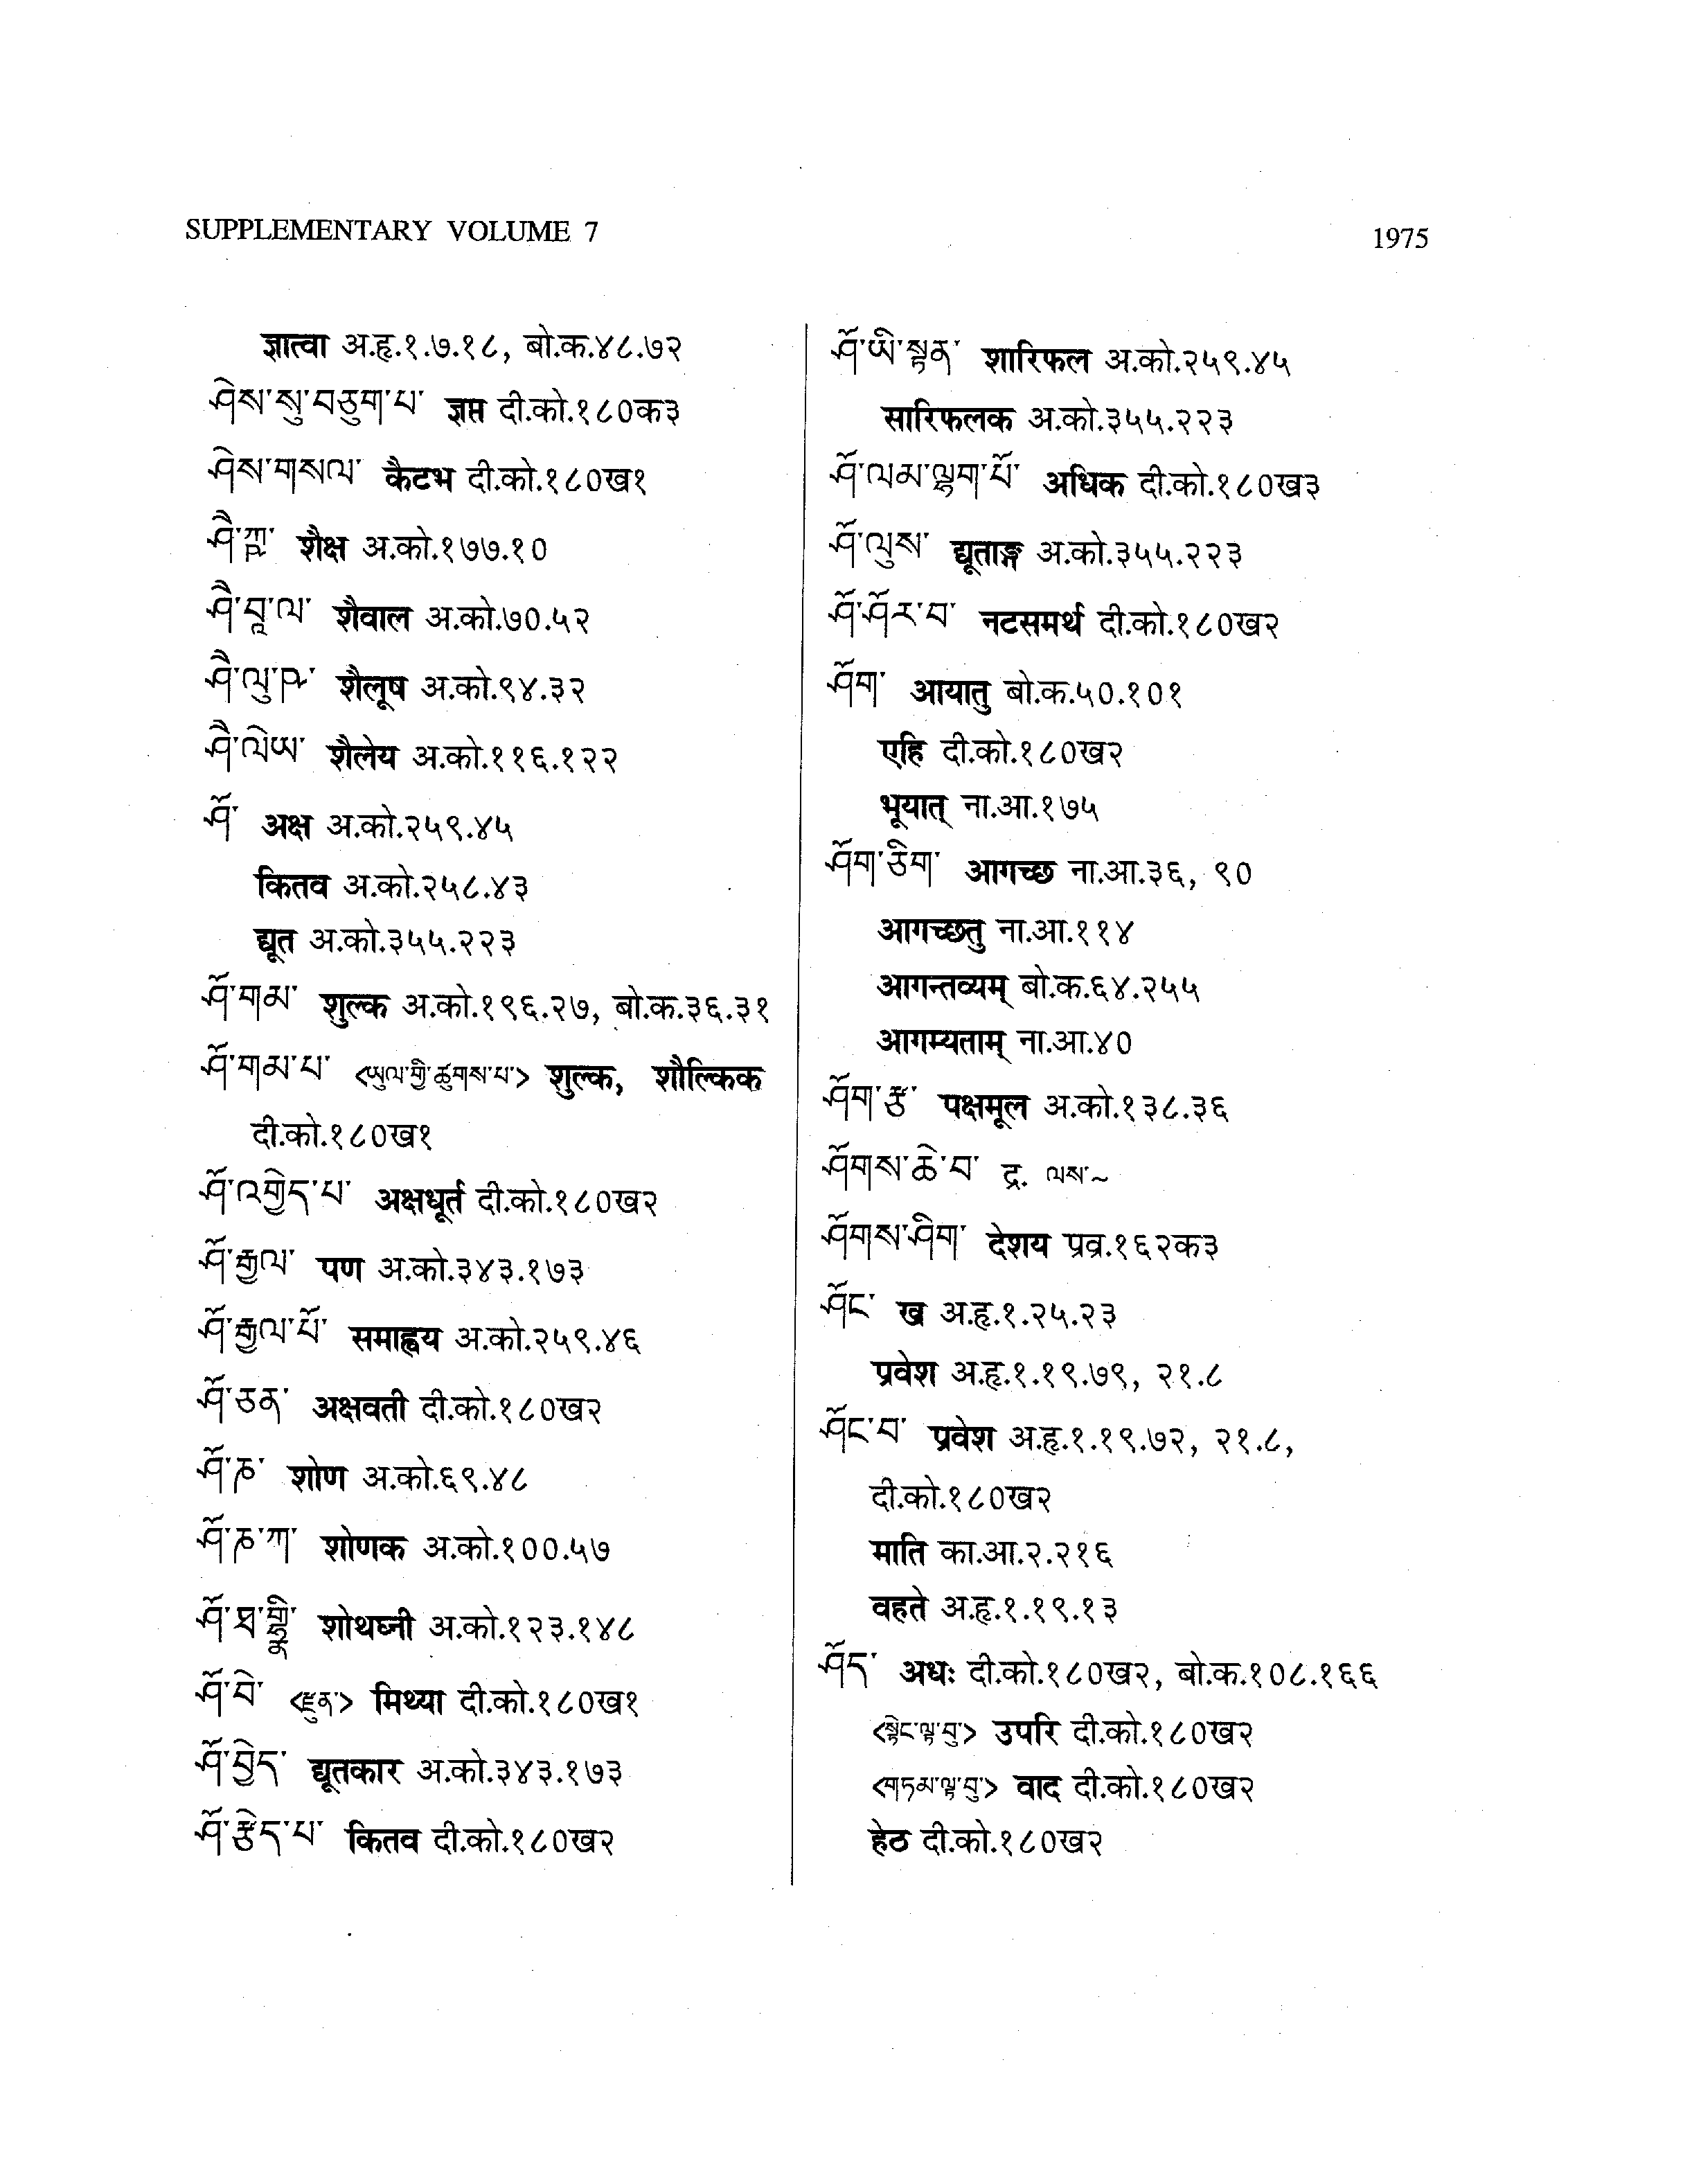 SUPPLEMENTARY VOLUME 7
1975
ज्ञात्वा अ.हृ.१.७.१८, बो.क.४८.७२
ཤེས་སུ་བཅུག་པ་ ज्ञप्त दी.को.१८०क३
ཤེས་གསལ་ कैटभ दी.को.१८०ख१
ཤཻ་ཀྵ་ शैक्ष अ.को.१७७.१०
ཤཻ་བཱ་ལ་ शैवाल अ.को.७०.५२
ཤཻ་ལུ་ཥ་ शैलूष अ.को.९४.३२
ཤཻ་ལེཡ་ शैलेय अ.को.११६.१२२
ཤོ་ अक्ष अ.को.२५९.४५
कितव अ.को.२५८.४३
द्यूत अ.को.३५५.२२३
ཤོ་གམ་ शुल्क अ.को.१९६.२७, बो.क.३६.३१
ཤོ་གམ་པ་ <ཡུལ་གྱི་ཚུགས་པ་> शुल्क, शौल्किक
दी.को.१८०ख१
ཤོ་འགྱེད་པ་ अक्षधूर्त दी.को.१८०ख२
ཤོ་རྒྱལ་ पण अ.को.३४३.१७३
ཤོ་རྒྱལ་པོ་ समाह्वय अ.को.२५९.४६
ཤོ་ཅན་ अक्षवती दी.को.१८०ख२
ཤོ་ཎ་ शोण अ.को.६९.४८
ཤོ་ཎ་ཀ་ शोणक अ.को.१००.५७
ཤོ་ཐ་གྷྣཱི་ शोथघ्नी अ.को.१२३.१४८
ཤོ་བེ་ <རྫུན་> मिथ्या दी.को.१८०ख१
ཤོ་བྱེད་ द्यूतकार अ.को.३४३.१७३
ཤོ་རྩེད་པ་ कितव दी.को.१८०ख२
ཤོ་ཡི་སྟན་ शारिफल अ.को.२५९.४५
सारिफलक अ.को.३५५.२२३
ཤོ་ལམ་ལྷག་པོ་ अधिक दी.को.१८०ख३
ཤོ་ལུས་ द्यूताङ्ग अ.को.३५५.२२३
ཤོ་ཤོར་བ་ नटसमर्थ दी.को.१८०ख२
ཤོག་ आयातु बो.क.५०.१०१
एहि दी.को.१८०ख२
भूयात् ना.आ.१७५
ཤོག་ཅིག་ आगच्छ ना.आ.३६, ९०
आगच्छतु ना.आ.११४
आगन्तव्यम् बो.क.६४.२५५
आगम्यताम् ना.आ.४०
ཤོག་རྩ་ पक्षमूल अ.को.१३८.३६
ཤོགས་ཆེ་བ་ द्र. ལས་~
ཤོགས་ཤིག་ देशय प्रव्र.१६२क३
ཤོང་ ख अ.हृ.१.२५.२३
प्रवेश अ.हृ.१.१९.७९, २१.८
ཤོང་བ་ प्रवेश अ.हृ.१.१९.७२, २१.८,
दी.को.१८०ख२
माति का.आ.२.२१६
वहते अ.हृ.१.१९.१३
ཤོད་ अधः दी.को.१८०ख२, बो.क.१०८.१६६
<སྟེང་ལྟ་བུ་> उपरि दी.को.१८०ख२
<གཏམ་ལྟ་བུ་> वाद दी.को.१८०ख२
हेठ दी.को.१८०ख२